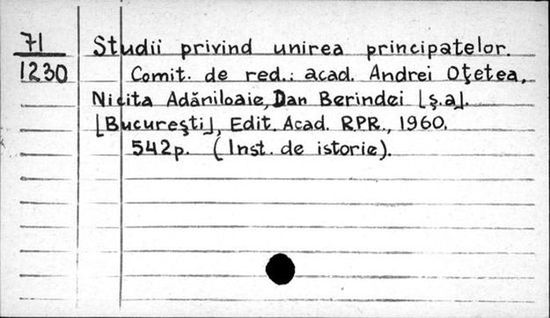 71
1230
Studii privind unirea principatelor.
Comit. de red.: acad. Andrei Oţetea,
Nicita Adăniloaie, Dan Berindei [ş.a].
[Bucureşti], Edit. Acad. RPR., 1960.
542p. (Inst. de istorie).